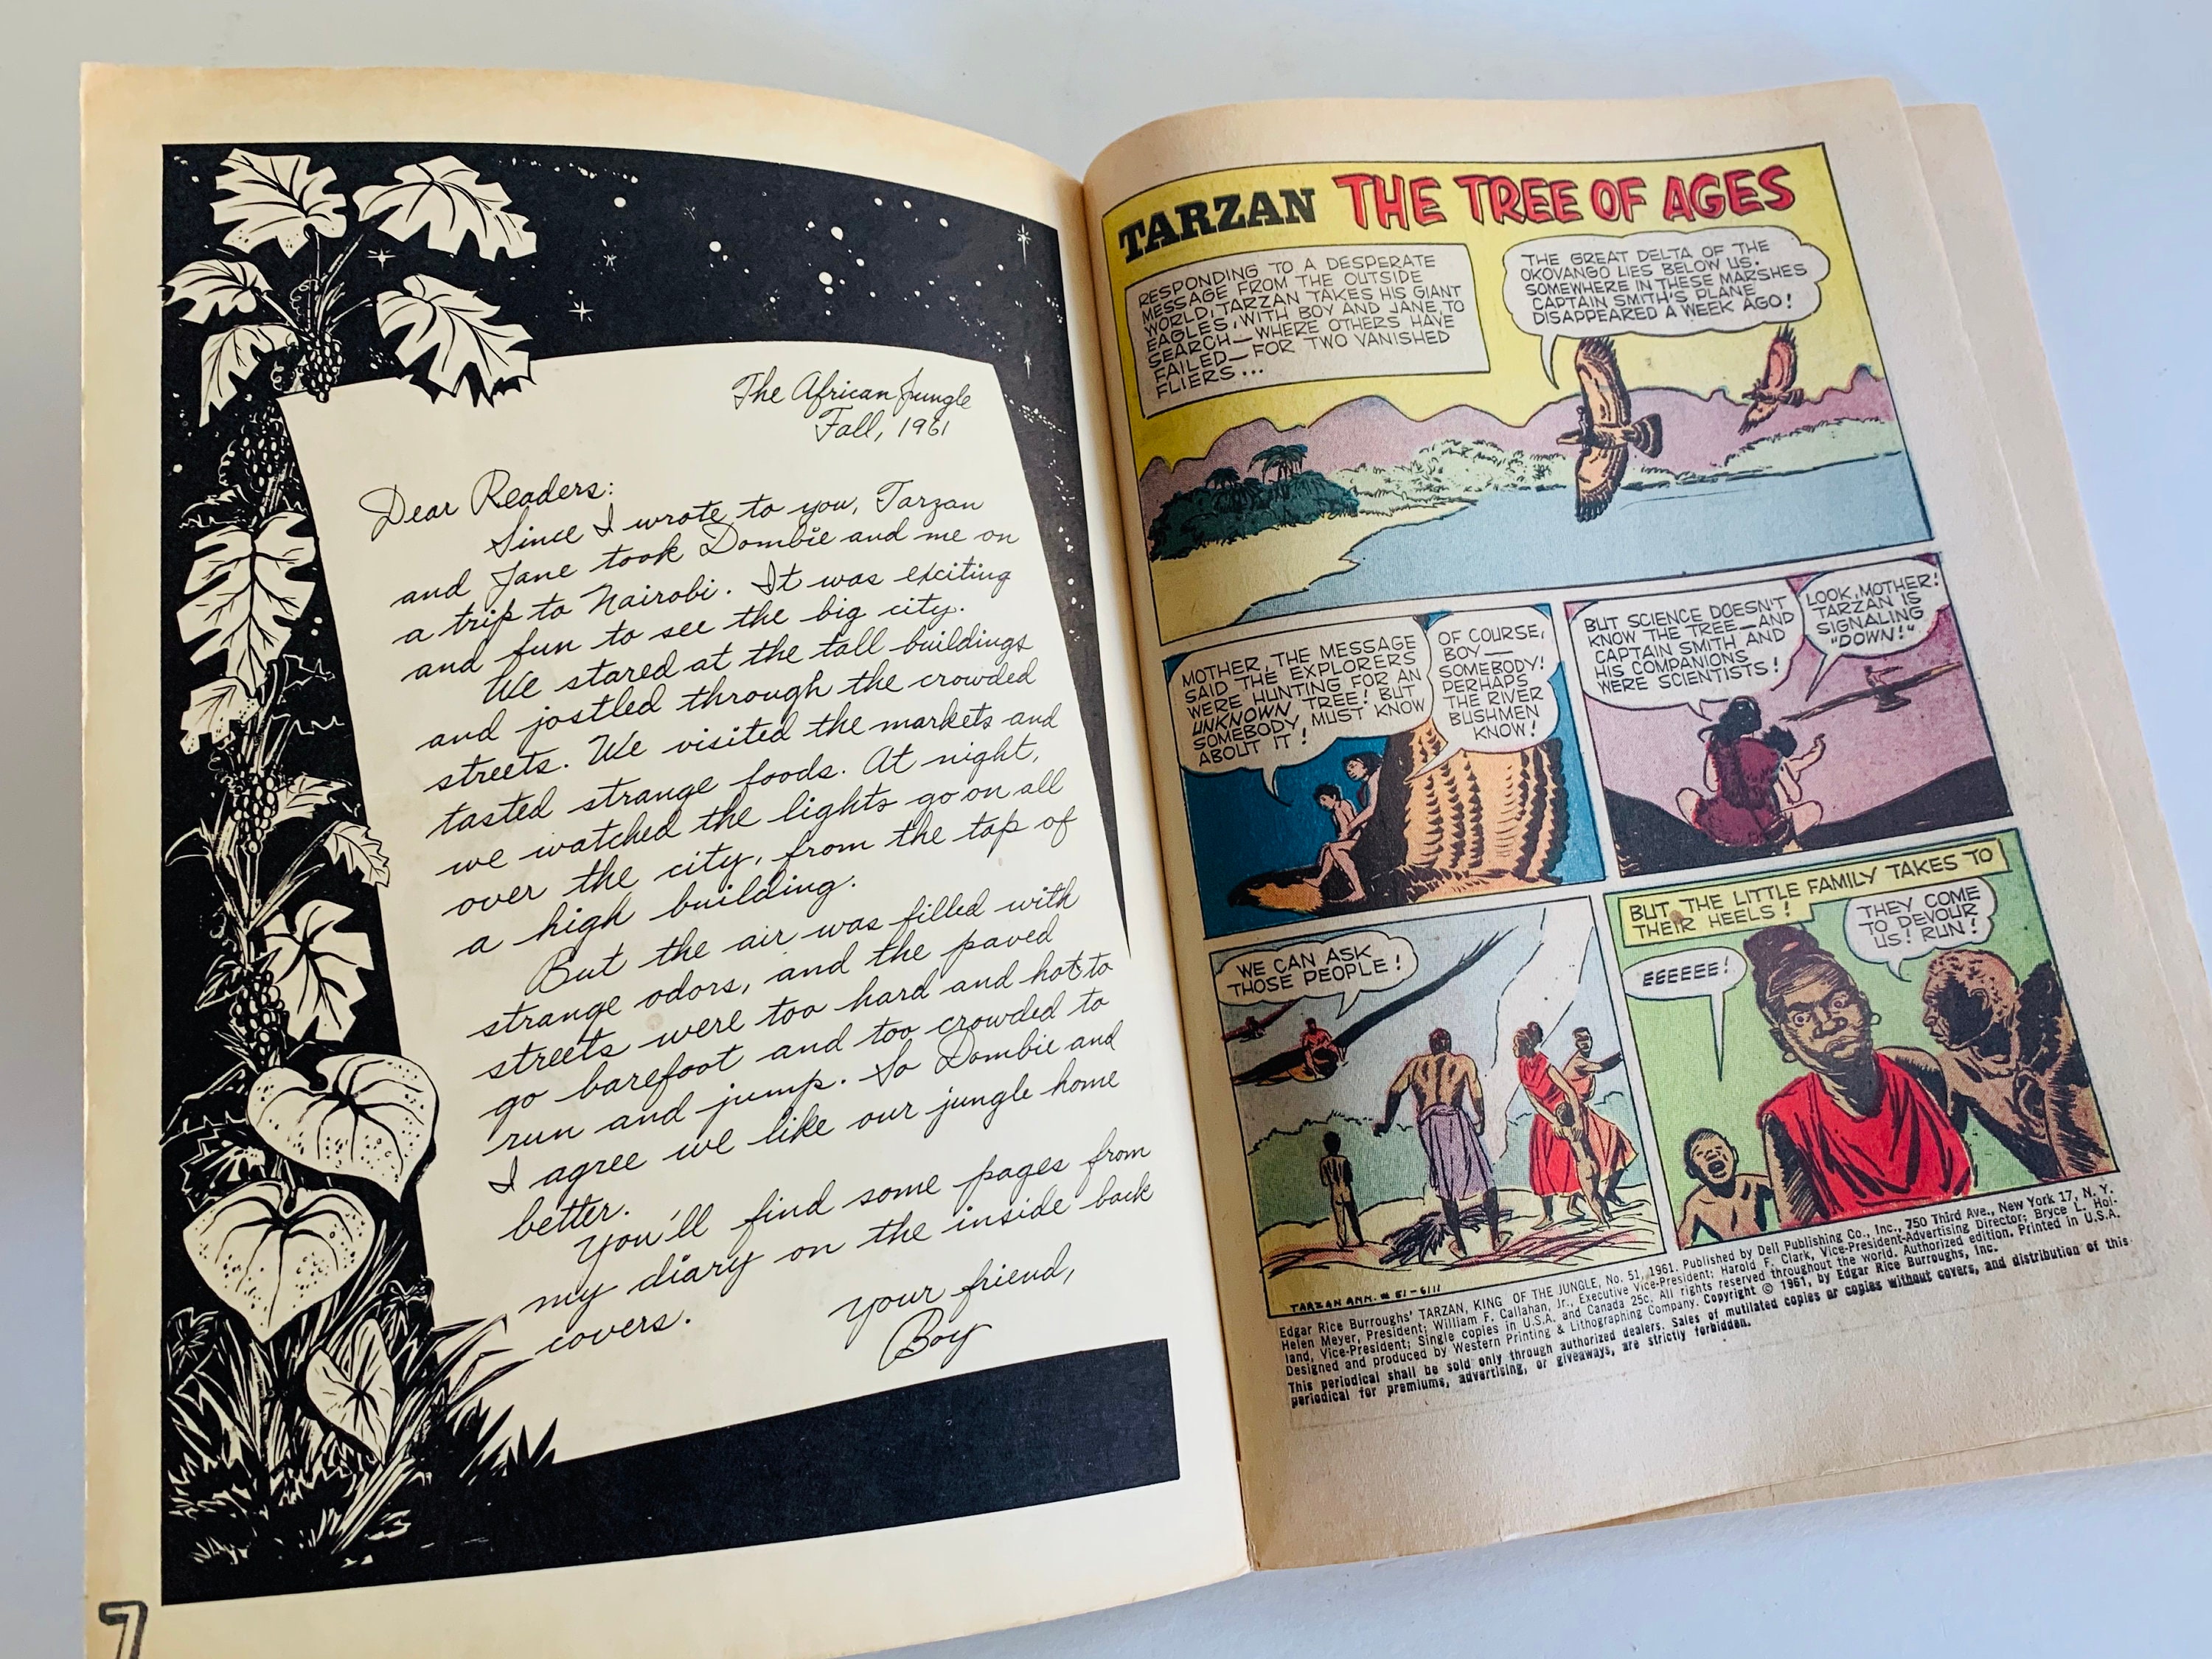 The African Jungle
Fall, 1961
Dear Readers:
Since I wrote to you, Tarzan
and Jane took Dombie and me on
a trip to Nairobi. It was exciting
and fun to see the big city.
We stared at the tall buildings
and jostled through the crowded
streets. We visited the markets and
tasted strange foods. At night,
we watched the lights go on all
over the city, from the top of
a high building.
But the air was filled with
strange odors, and the paved
streets were too hard and hot to
go barefoot and too crowded to
run and jump. So Dombie and
I agree we like our jungle home
better.
You'll find some pages from
my diary on the inside back
covers.
Your friend,
Boy
7
TARZAN THE TREE OF AGES
RESPONDING TO A DESPERATE
MESSAGE FROM THE OUTSIDE
WORLD, TARZAN TAKES HIS GIANT
EAGLES, WITH BOY AND JANE, TO
SEARCH—WHERE OTHERS HAVE
FAILED—FOR TWO VANISHED
FLIERS...
THE GREAT DELTA OF THE
OKOVANGO LIES BELOW US.
SOMEWHERE IN THESE MARSHES
CAPTAIN SMITH'S PLANE
DISAPPEARED A WEEK AGO!
MOTHER, THE MESSAGE
SAID THE EXPLORERS
WERE HUNTING FOR AN
UNKNOWN TREE! BUT
SOMEBODY MUST KNOW
ABOUT IT!
OF COURSE,
BOY—
SOMEBODY!
PERHAPS
THE RIVER
BUSHMEN
KNOW!
BUT SCIENCE DOESN'T
KNOW THE TREE—AND
CAPTAIN SMITH AND
HIS COMPANIONS
WERE SCIENTISTS!
LOOK, MOTHER!
TARZAN IS
SIGNALING
"DOWN!"
WE CAN ASK
THOSE PEOPLE!
BUT THE LITTLE FAMILY TAKES TO
THEIR HEELS!
EEEEEE!
THEY COME
TO DEVOUR
US! RUN!
TARZAN ANN. #51-6111
Edgar Rice Burroughs' TARZAN, KING OF THE JUNGLE, No. 51, 1961. Published by Dell Publishing Co., Inc., 750 Third Ave., New York 17, N. Y.
Helen Meyer, President; William F. Callahan, Jr., Executive Vice-President; Harold F. Clark, Vice-President-Advertising Director; Bryce L. Hol-
land, Vice-President; Single copies in U.S.A. and Canada 25c. All rights reserved throughout the world. Authorized edition. Printed in U.S.A.
Designed and produced by Western Printing & Lithographing Company. Copyright © 1961, by Edgar Rice Burroughs, Inc.
This periodical shall be sold only through authorized dealers. Sales of mutilated copies or copies without covers, and distribution of this
periodical for premiums, advertising, or giveaways, are strictly forbidden.